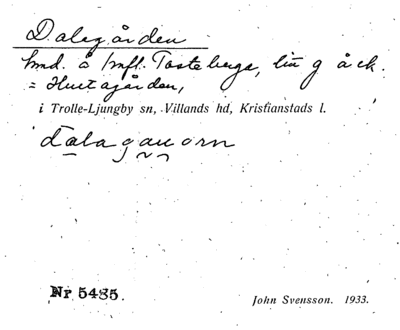 Dalegården
hmd. å Imfl. Tosteberga, liu g å ck.
= Hurtagården,
i Trolle-Ljungby sn, Villands hd, Kristianstads l.
dalagauorn
Nr 5485.
John Svensson. 1933.